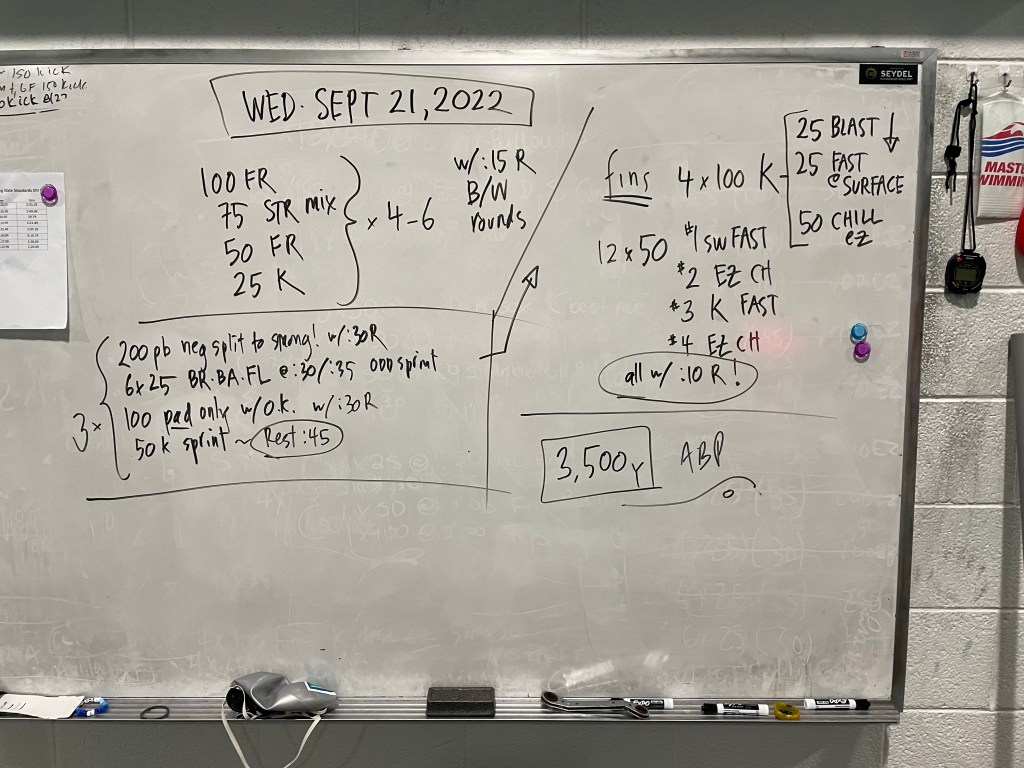 150 KICK
GF 150 Kick
Kick 8/27
WED. SEPT 21, 2022
100 FR
75 STR MIX
50 FR
25 K
x 4-6
w/:15 R
B/W
rounds
3x
200 pb neg split to strong! w/:30R
6x25 BR.BA.FL @:30/:35 ODD sprint
100 pad only w/O.K. w/:30R
50 K sprint ~ Rest:45
fins 4x100 K
25 BLAST ↓
25 FAST
@ SURFACE
50 CHILL
EZ
12 x 50 #1 SW FAST
#2 EZ CH
#3 K FAST
#4 EZ CH
all w/ :10 R!
3,500Y ABP
SEYDEL
MASTE
WIMMIN